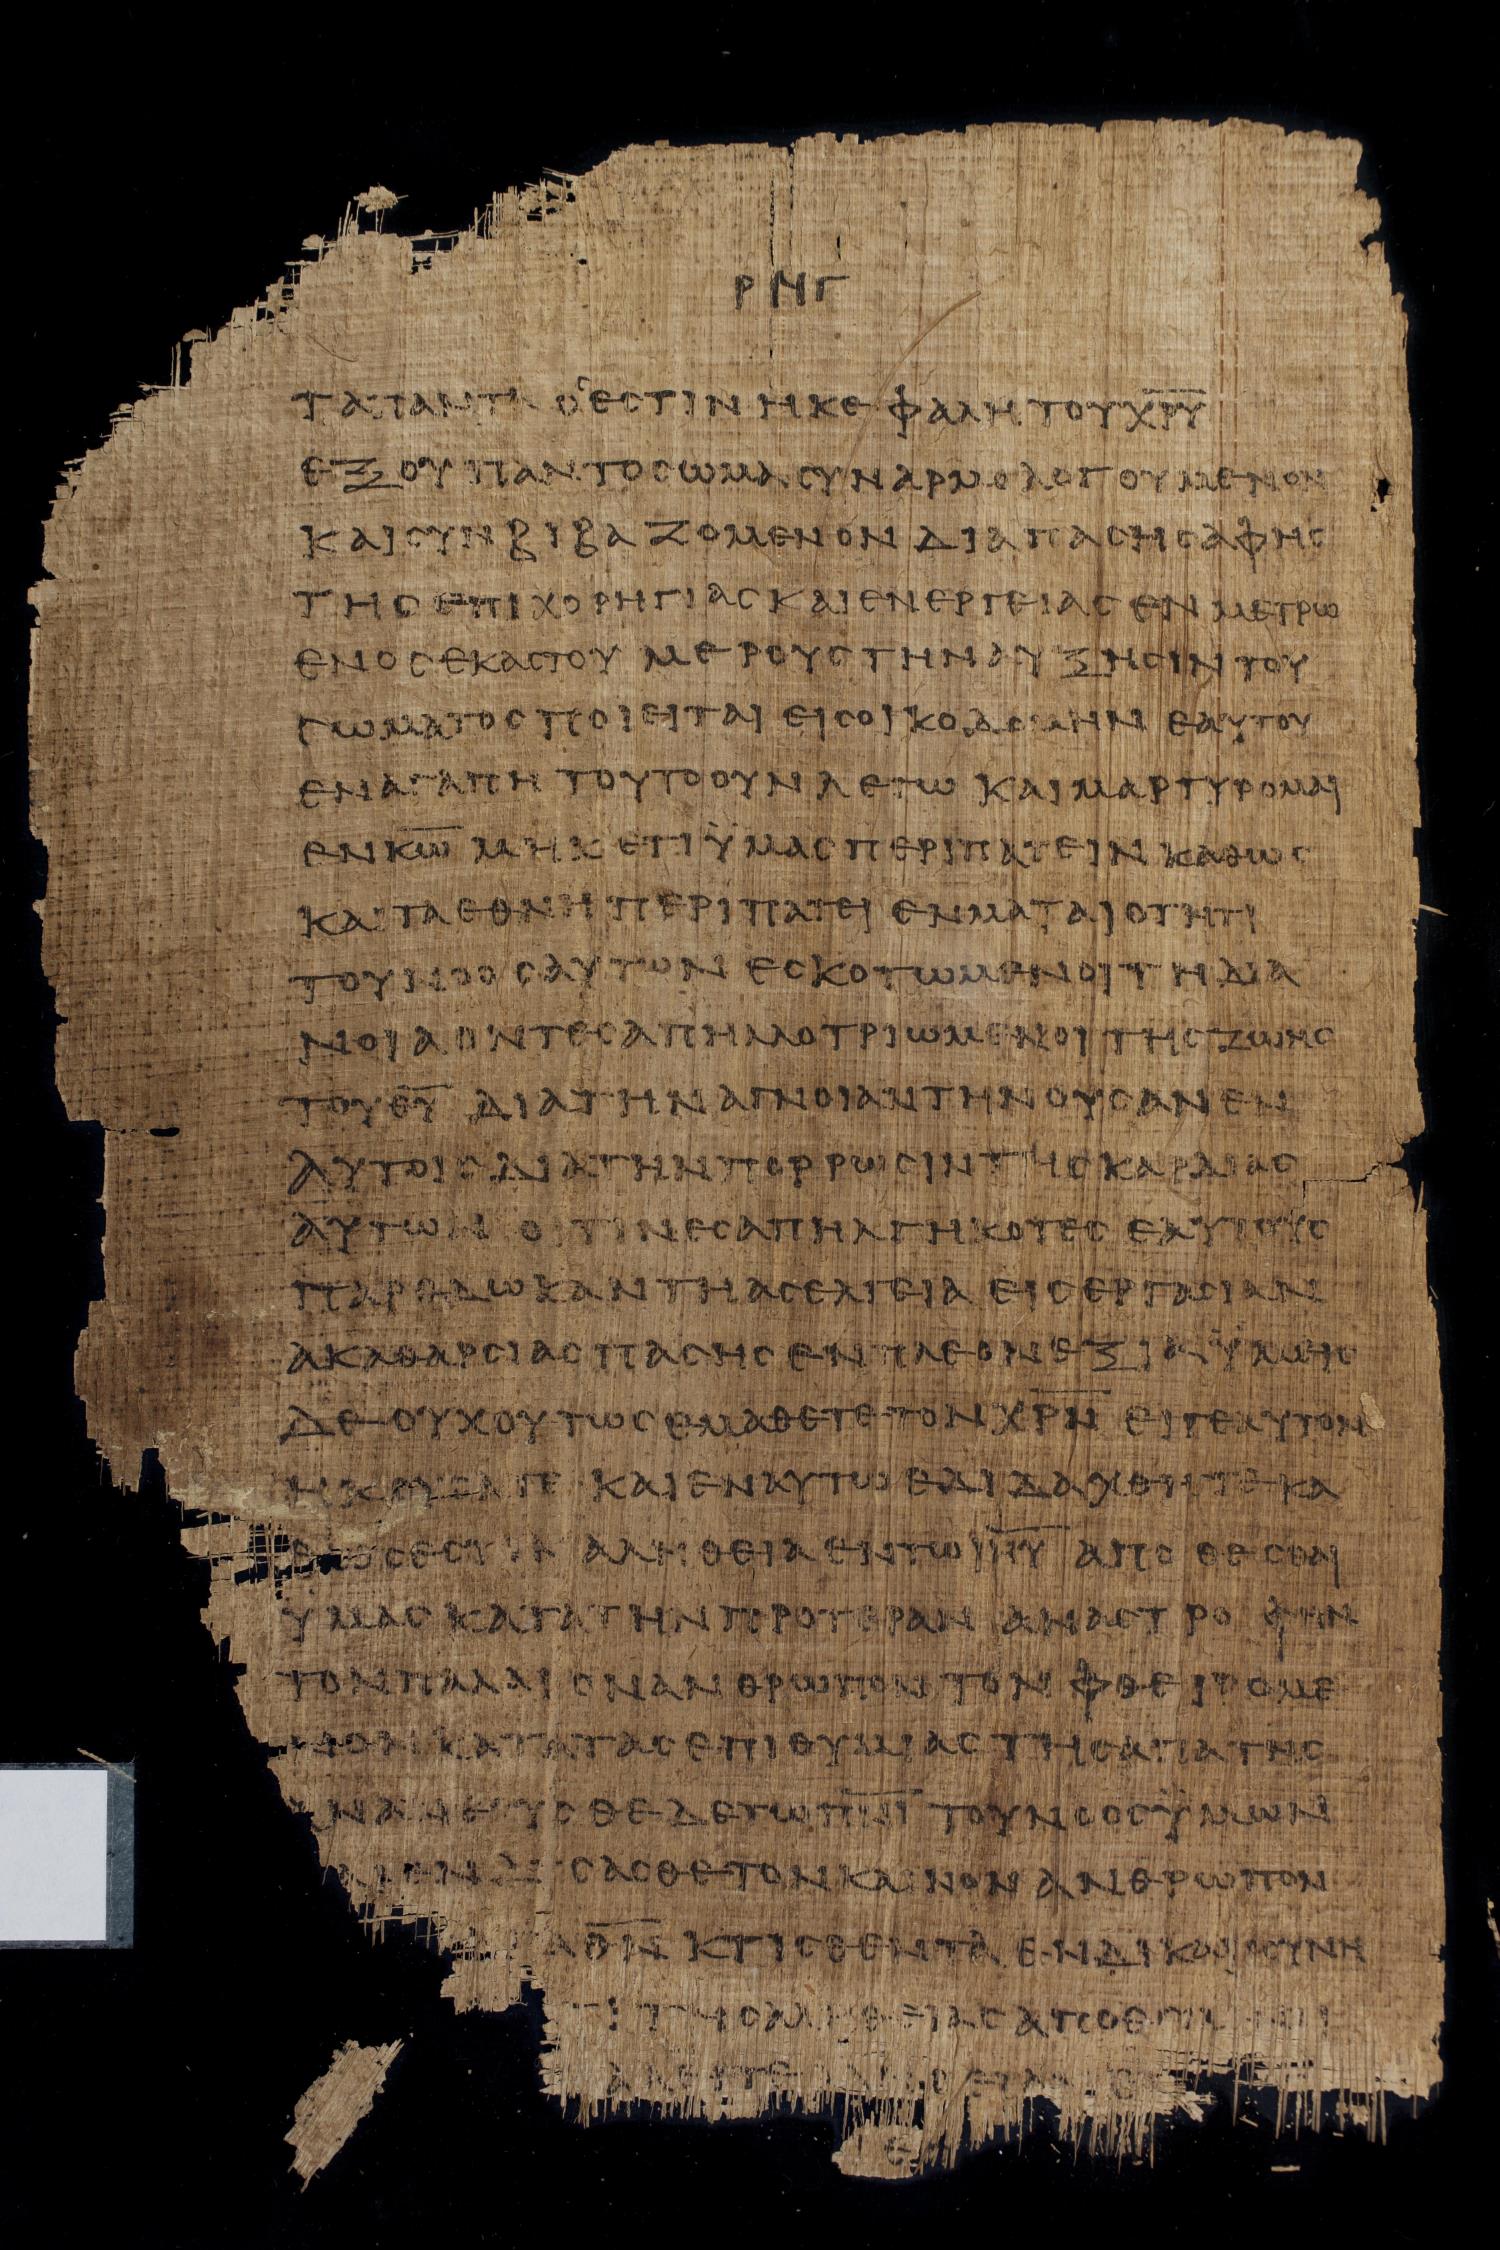 ΡΝΓ
ΤΑ ΠΑΝΤΑ Ο ΕΣΤΙΝ Η ΚΕΦΑΛΗ ΤΟΥ Χ̅Ρ̅Υ̅
ΕΞ ΟΥ ΠΑΝ ΤΟ ΣΩΜΑ ΣΥΝΑΡΜΟΛΟΓΟΥΜΕΝΟΝ
ΚΑΙ ΣΥΝΒΙΒΑΖΟΜΕΝΟΝ ΔΙΑ ΠΑΣΗΣ ΑΦΗΣ
ΤΗΣ ΕΠΙΧΟΡΗΓΙΑΣ ΚΑΙ ΕΝΕΡΓΕΙΑΣ ΕΝ ΜΕΤΡΩ
ΕΝΟΣ ΕΚΑΣΤΟΥ ΜΕΡΟΥΣ ΤΗΝ ΑΥΞΗΣΙΝ ΤΟΥ
ΣΩΜΑΤΟΣ ΠΟΙΕΙΤΑΙ ΕΙΣ ΟΙΚΟΔΟΜΗΝ ΕΑΥΤΟΥ
ΕΝ ΑΓΑΠΗ ΤΟΥΤΟ ΟΥΝ ΛΕΓΩ ΚΑΙ ΜΑΡΤΥΡΟΜΑΙ
ΕΝ Κ̅Ω̅ ΜΗΚΕΤΙ ΫΜΑΣ ΠΕΡΙΠΑΤΕΙΝ ΚΑΘΩΣ
ΚΑΙ ΤΑ ΕΘΝΗ ΠΕΡΙΠΑΤΕΙ ΕΝ ΜΑΤΑΙΟΤΗΤΙ
ΤΟΥ ΝΟΟΣ ΑΥΤΩΝ ΕΣΚΟΤΩΜΕΝΟΙ ΤΗ ΔΙΑ
ΝΟΙΑ ΟΝΤΕΣ ΑΠΗΛΛΟΤΡΙΩΜΕΝΟΙ ΤΗΣ ΖΩΗΣ
ΤΟΥ Θ̅Υ̅ ΔΙΑ ΤΗΝ ΑΓΝΟΙΑΝ ΤΗΝ ΟΥΣΑΝ ΕΝ
ΑΥΤΟΙΣ ΔΙΑ ΤΗΝ ΠΟΡΡΩΣΙΝ ΤΗΣ ΚΑΡΔΙΑΣ
ΑΥΤΩΝ ΟΙΤΙΝΕΣ ΑΠΗΛΓΗΚΟΤΕΣ ΕΑΥΤΟΥΣ
ΠΑΡΕΔΩΚΑΝ ΤΗ ΑΣΕΛΓΕΙΑ ΕΙΣ ΕΡΓΑΣΙΑΝ
ΑΚΑΘΑΡΣΙΑΣ ΠΑΣΗΣ ΕΝ ΠΛΕΟΝΕΞΙΑ ΫΜΕΙΣ
ΔΕ ΟΥΧ ΟΥΤΩΣ ΕΜΑΘΕΤΕ ΤΟΝ Χ̅Ρ̅Ν̅ ΕΙ ΓΕ ΑΥΤΟΝ
ΗΚΟΥΣΑΤΕ ΚΑΙ ΕΝ ΑΥΤΩ ΕΔΙΔΑΧΘΗΤΕ ΚΑ
ΘΩΣ ΕΣΤΙΝ ΑΛΗΘΕΙΑ ΕΝ ΤΩ Ι̅Η̅Υ̅ ΑΠΟΘΕΣΘΑΙ
ΫΜΑΣ ΚΑΤΑ ΤΗΝ ΠΡΟΤΕΡΑΝ ΑΝΑΣΤΡΟΦΗΝ
ΤΟΝ ΠΑΛΑΙΟΝ ΑΝΘΡΩΠΟΝ ΤΟΝ ΦΘΕΙΡΟΜΕ
ΝΟΝ ΚΑΤΑ ΤΑΣ ΕΠΙΘΥΜΙΑΣ ΤΗΣ ΑΠΑΤΗΣ
ΑΝΑΝΕΟΥΣΘΕ ΔΕ ΤΩ Π̅Ν̅Ι̅ ΤΟΥ ΝΟΟΣ ΫΜΩΝ
ΚΑΙ ΕΝΔΥΣΑΣΘΕ ΤΟΝ ΚΑΙΝΟΝ ΑΝΘΡΩΠΟΝ
Θ̅Ν̅ ΚΤΙΣΘΕΝΤΑ ΕΝ ΔΙΚΑΙΟΣΥΝΗ
ΤΗΣ ΑΛΗΘΕΙΑΣ ΑΠΟΘΕΜΕΝΟΙ